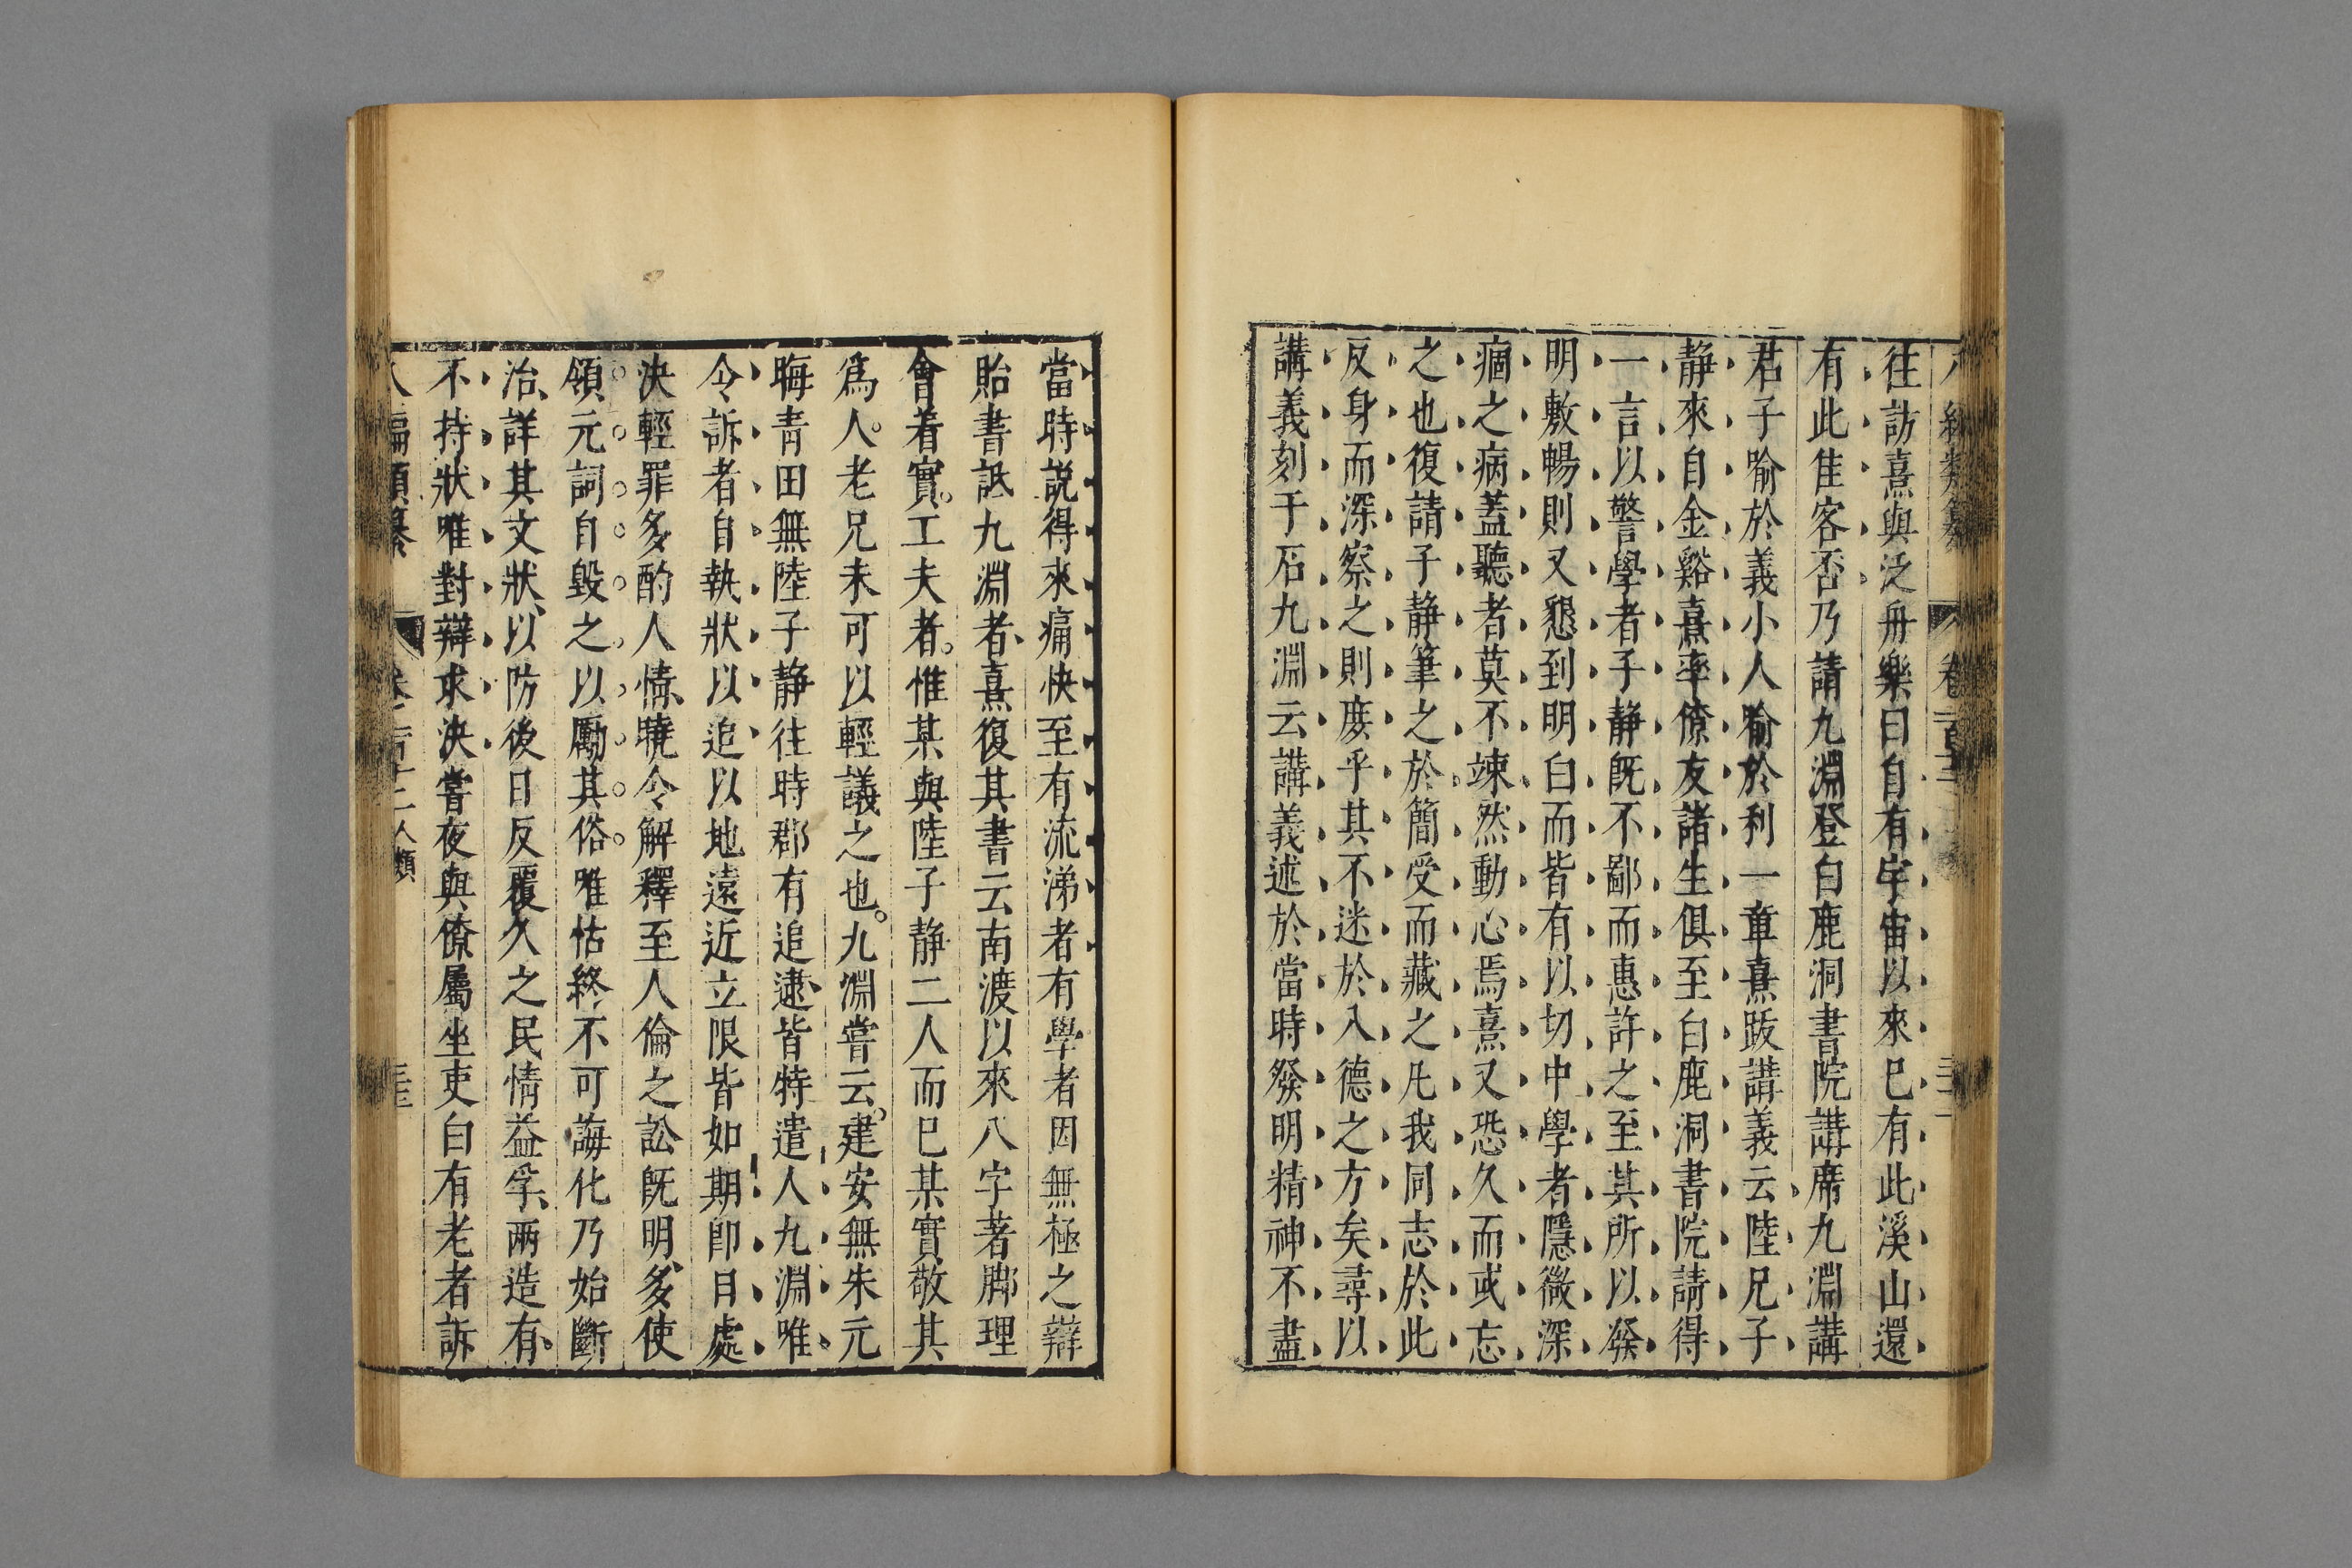 往訪熹與泛舟樂曰自有宇宙以來已有此溪山還
有此佳客否乃請九淵登白鹿洞書院講席九淵講
君子喻於義小人喻於利一章熹跋講義云陸兄子
静來自金谿熹率僚友諸生俱至白鹿洞書院請得
一言以警學者子静既不鄙而惠許之至其所以發
明敷暢則又懇到明白而皆有以切中學者隱微深
痼之病蓋聽者莫不竦然動心焉熹又恐久而或忘
之也復請子静筆之於簡受而藏之凡我同志於此
反身而深察之則庶乎其不迷於入德之方矣尋以
講義刻于石九淵云講義述於當時發明精神不盡
當時説得來痛快至有流涕者有學者因無極之辯
貽書詆九淵者熹復其書云南渡以來八字著脚理
會着實工夫者惟某與陸子静二人而已某實敬其
爲人老兄未可以輕議之也九淵嘗云建安無朱元
晦青田無陸子静往時郡有追逮皆特遣人九淵唯
令訴者自執狀以追以地遠近立限皆如期即日處
決輕罪多酌人情曉令解釋至人倫之訟既明多使
領元詞自毀之以勵其俗唯怙終不可誨化乃始斷
治詳其文狀以防後日反覆久之民情益孚兩造有
不持狀唯對辯求決嘗夜與僚屬坐吏白有老者訴
編類纂 人類